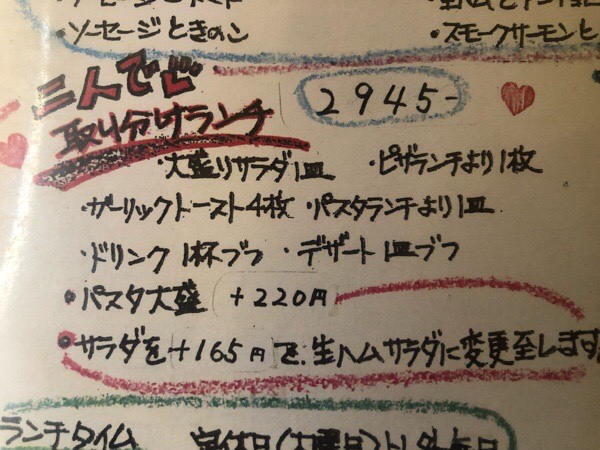 ・ソーセージときのこ
・スモークサーモンと
二人でど
取り分けランチ
2945-
・大盛りサラダ1皿 ・ピザランチより1枚
・ガーリックトースト4枚 ・パスタランチより1皿
・ドリンク1杯ヅつ ・デザート1皿ヅつ
・パスタ大盛 +220円
・サラダを+165円で、生ハムサラダに変更至します
ランチタイム 定休日(火曜日)以外毎日